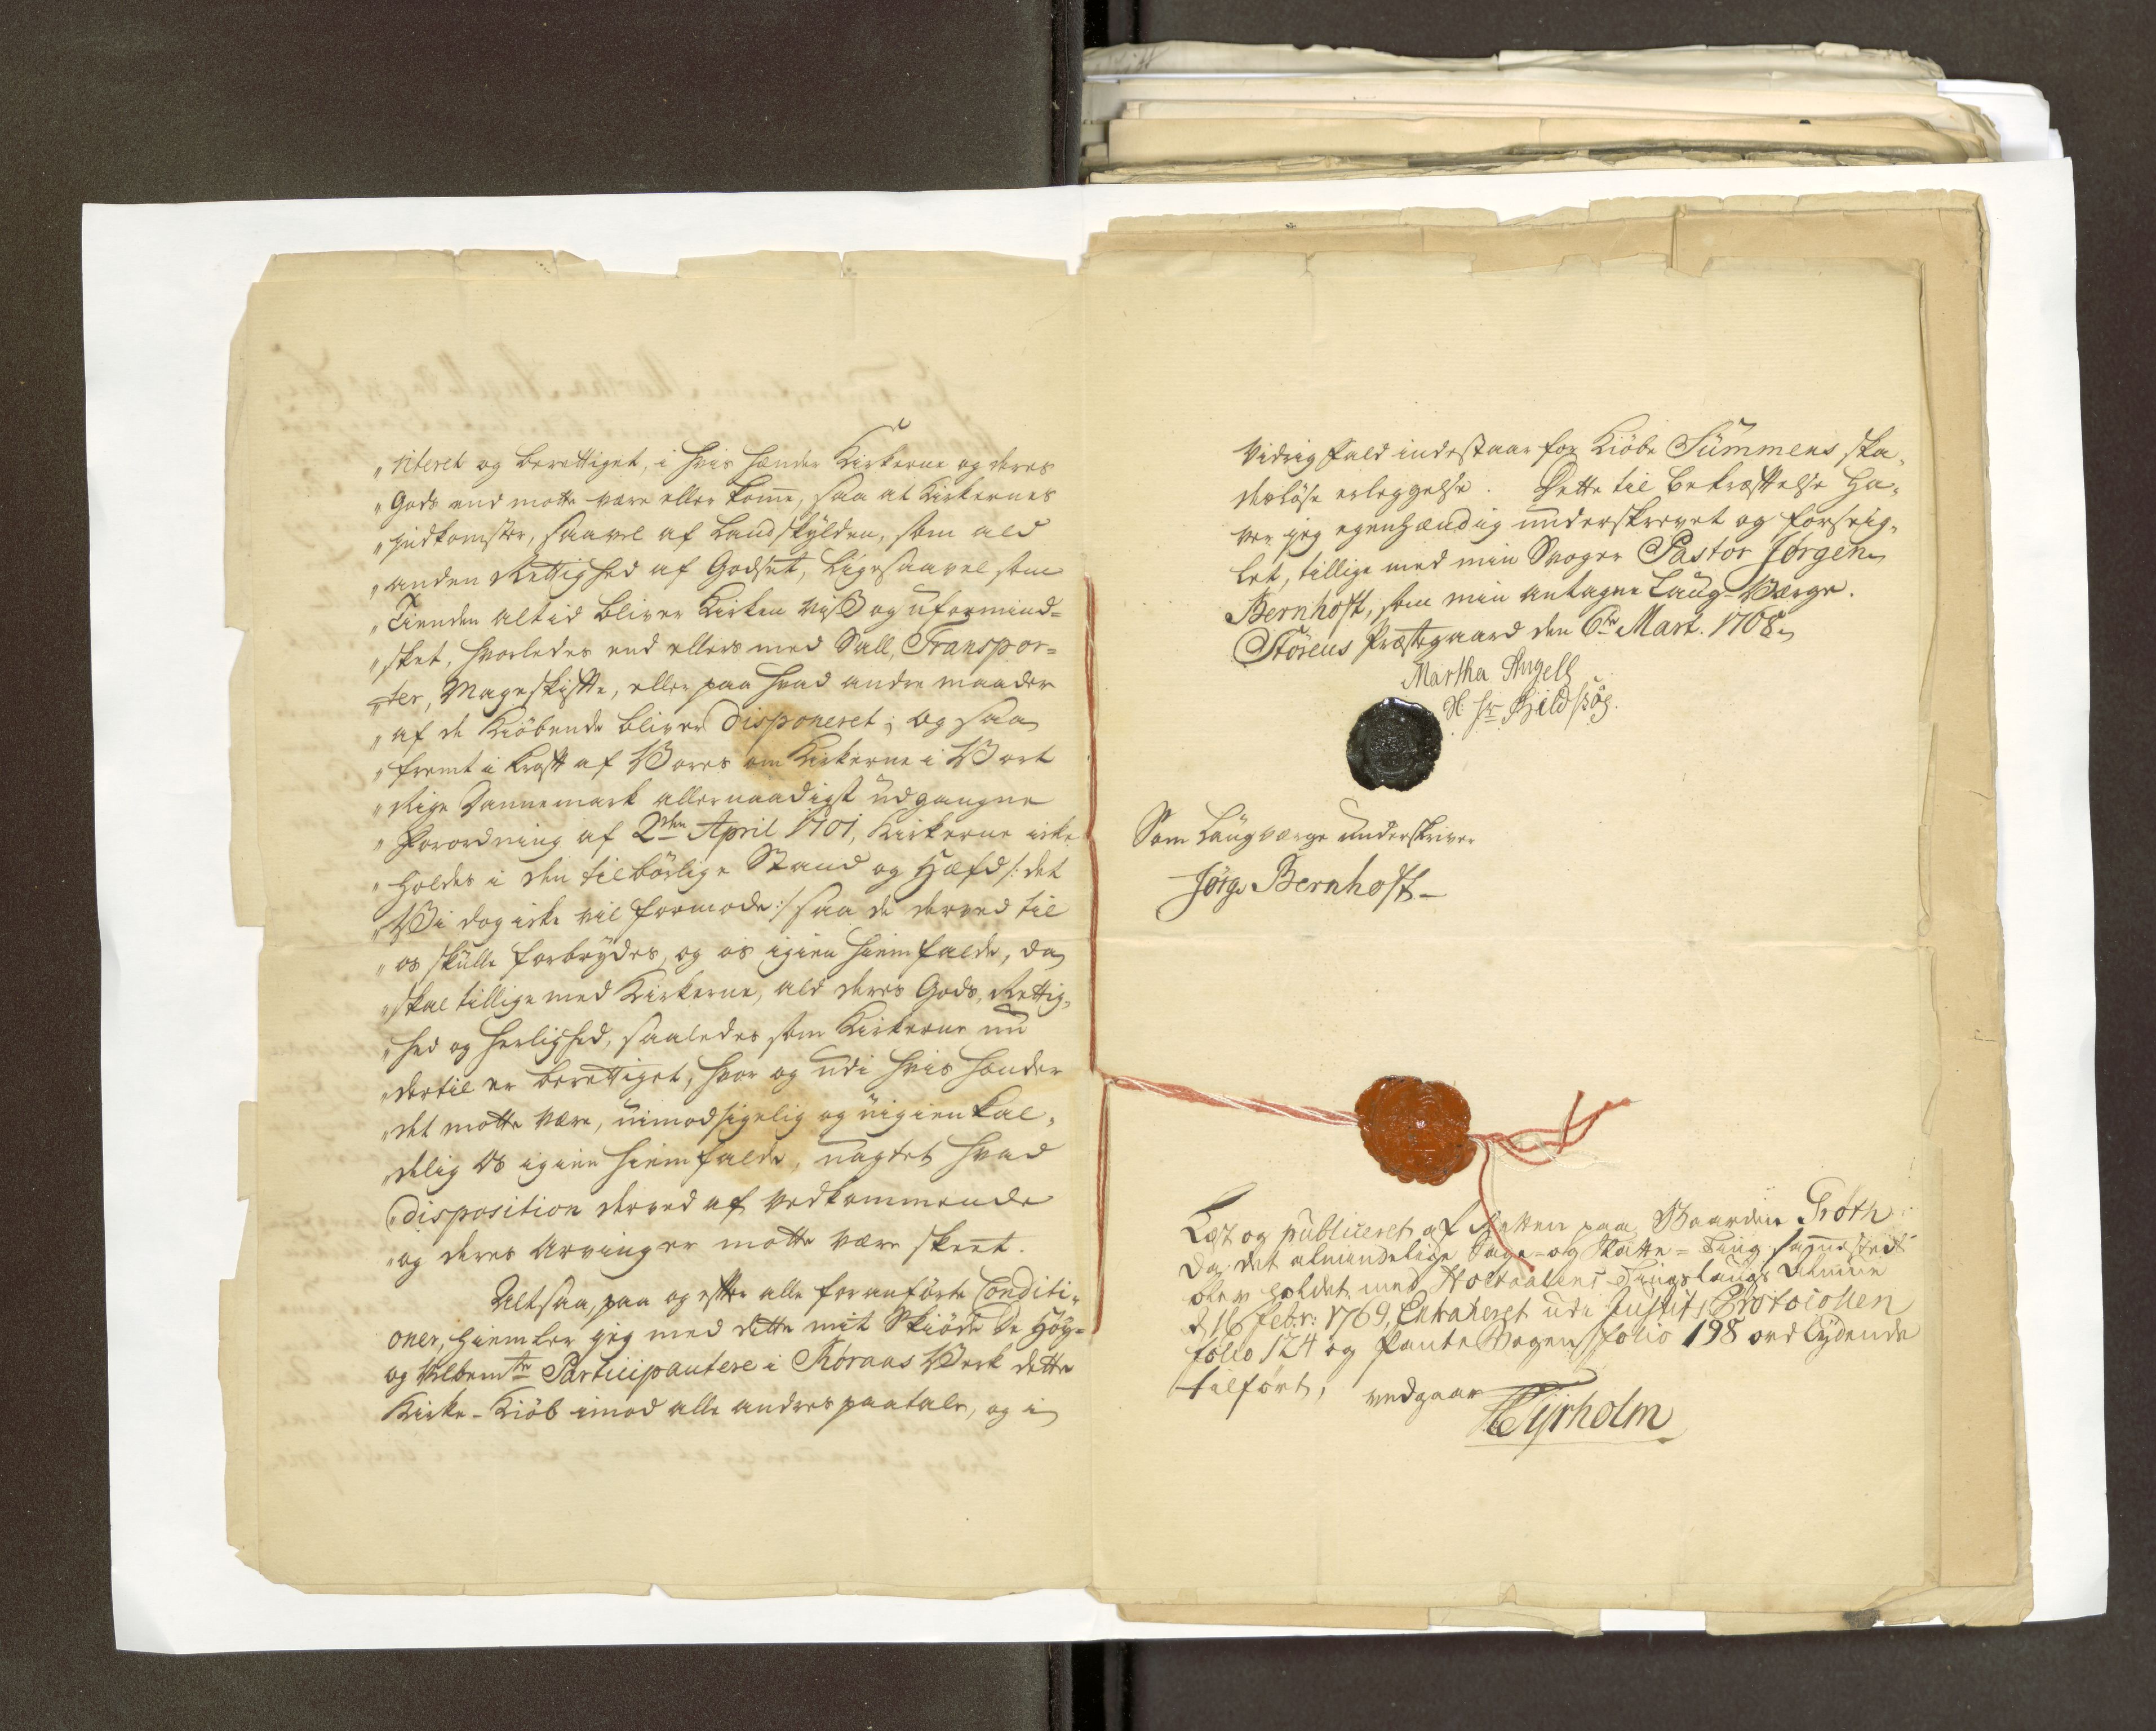 „ viteret og berettiget, i hvis hænder Kirkerne og deres
„ Gods end motte være eller komme, saa at Kirkernes
„ Indkomster, saavel af Landskylden, som ald
„ anden Rettighed af Godset, ligesaavel som
„ Tienden altid bliver Kirken viss og uformind-
„ sket, hvorledes end ellers med Sall, Transpor-
„ ter, Mageskiffte, eller paa hvad andre maader
„ af de Kiöbende bliver disponeret; og saa
„ fremt i krafft af Vores om Kirkerne i Vort
„ Rige Dannemark allernaadigst udgangne
„ Forordning af 2den April 1701, Kirkerne icke
„ holdes i den tilbörlige Stand og Hæfd /: det
„ Vi dog icke vil formode :/ saa de derved til
„ os skulle forbrydes, og os igien hiemfalde, da
„ skal tillige med Kirkerne, ald deres Gods, Rettig-
„ hed og Herlighed, saaledes som Kirkerne nu
„ dertil er berettiget, hvor og udi hvis hænder
„ det motte være, uimodsigelig og uigienkal-
„ delig Os igien hiemfalde, uagtet hvad
„ Disposition derved af vedkommende
„ og deres Arvinger motte være skeet.
Altsaa, paa og effter alle foranförte Conditi-
oner, hiemler jeg med dette mit Skiöde De Höy-
og Velbemte Participantere i Röraas Verk dette
Kirke-Kiöb imod alle andres paatale, og i
Vidrig fald indestaar for Kiöbe Summens ska-
deslöse erleggelse. Dette til bekræfftelse ha-
ver jeg egenhændig underskrevet og forseig-
let, tillige med min Svoger Pastor Jörgen
Bernhofft, som min antagne Laug-Værge.
Störens Præstegaard den 6te Mart. 1768.
Martha Angell
Sl. Hr Hildssög
Som Laugværge underskriver
Jörg: Bernhofft
Læst og publiceret af Retten paa Gaarden Groth
da det almindelige Sage- og Skatte-Ting sammesteds
blev holdet med Holtaalens Tinglaugs Almue
d 16 Febr: 1769, Extraheret udi Justits Protocollen
folio 124 og Pante Bogen folio 198 ord lydende
tilfört,
vedgaar
Hyrholm